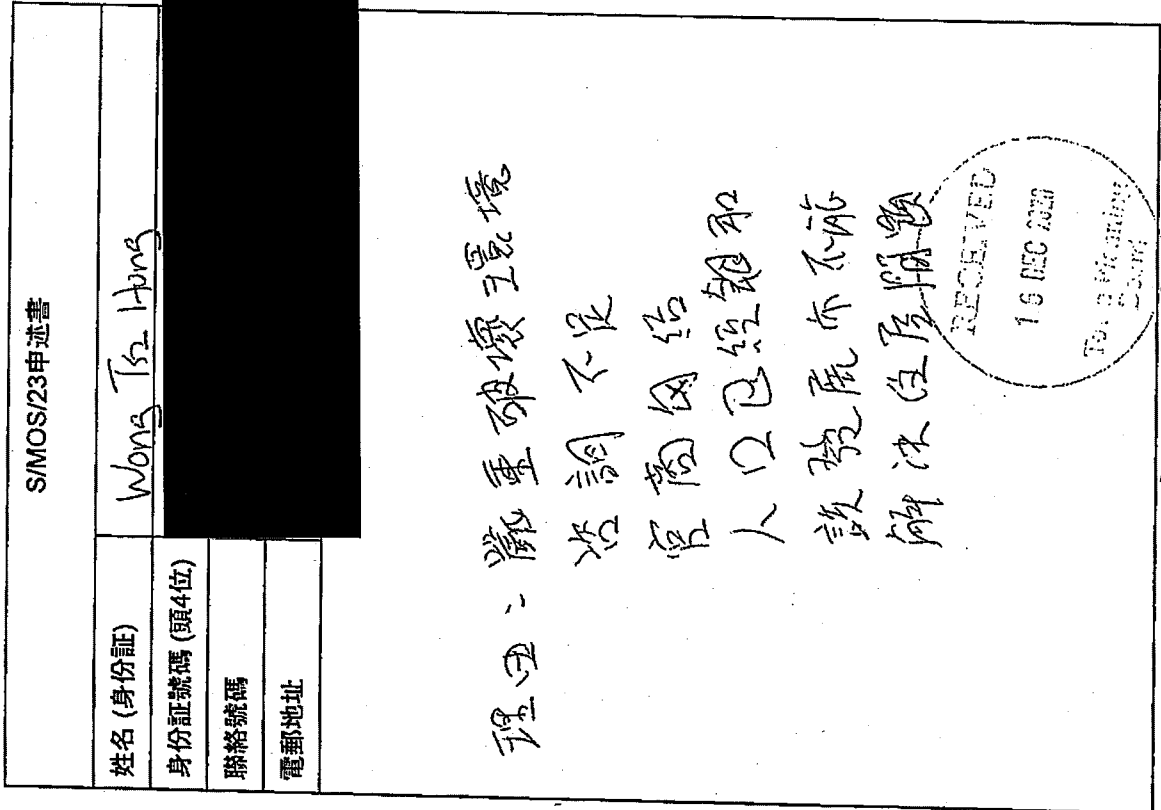 S/MOS/23申述書
姓名 (身份証) Wong Tsz Hung
身份証號碼 (頭4位)
聯絡號碼
電郵地址
理由: 嚴重破壞環境
諮詢不足
官商勾結
人口已經飽和
該發展亦不能
解決住屋問題
RECEIVED
16 DEC 2020
Town Planning
Board